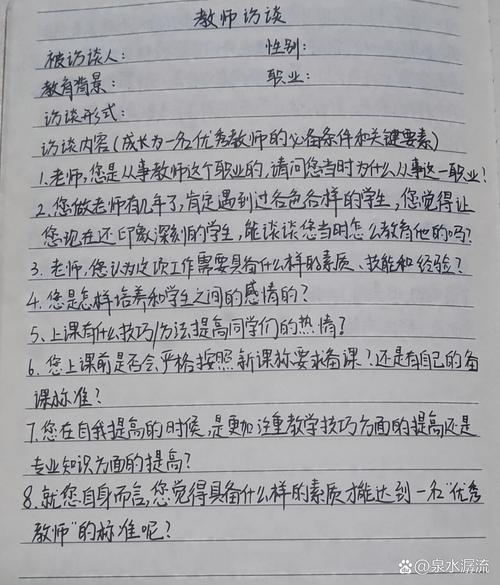 教师访谈
被访谈人： 性别：
教育背景： 职业：
访谈形式：
访谈内容(成长为一名优秀教师的必备条件和关键要素)
1.老师,您是从事教师这个职业的,请问您当时为什么从事这一职业?
2.您做老师有几年了,肯定遇到过各色各样的学生,您觉得让
您现在还印象深刻的学生,能谈谈您当时怎么教育他的吗?
3.老师,您认为这项工作需要具备什么样的素质、技能和经验?
4.您是怎样培养和学生之间的感情的?
5、上课有什么技巧/方法提高同学们的热情?
6.您上课前是否会严格按照新课标要求备课?还是有自己的备
课标准?
7.您在自我提高的时候,是更加注重教学技巧方面的提高还是
专业知识方面的提高?
8.就您自身而言,您觉得具备什么样的素质才能达到一名“优秀
教师”的标准呢?
Bai百家号/泉水潺流